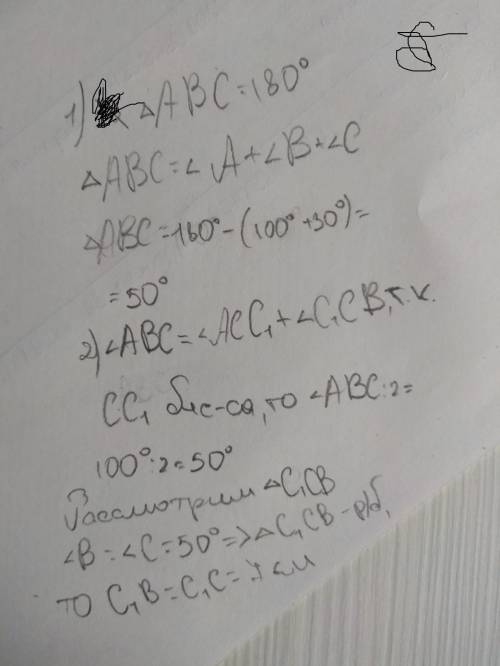 1) △ABC=180°
△ABC=∠A+∠B+∠C
△ABC=180°-(100°+30°)=
=50°
2) ∠ABC=∠ACC₁+∠C₁CB, т.к.
CC₁ бис-са, то ∠ABC:2=
100°:2=50°
Рассмотрим △C₁CB
∠B=∠C=50°=>△C₁CB-р/б,
то C₁B=C₁C= см